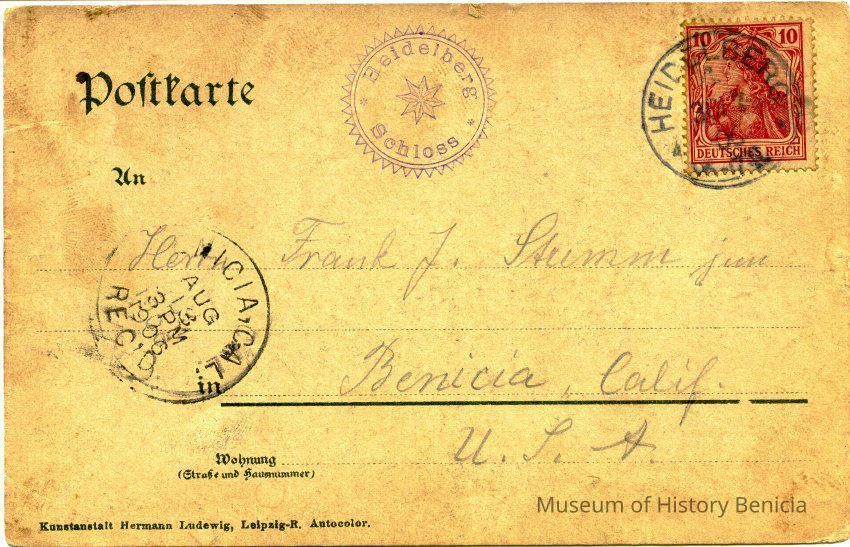 Postkarte
Heidelberg
Schloss
10 10
DEUTSCHES REICH
HEIDELBERG
An
Herrn Frank J. Stumm jun
NICIA, CAL.
AUG
13
3 PM
REC'D
in
Benicia, Calif.
U. S. A.
Wohnung
(Straße und Hausnummer)
Museum of History Benicia
Kunstanstalt Hermann Ludewig, Leipzig-R. Autocolor.